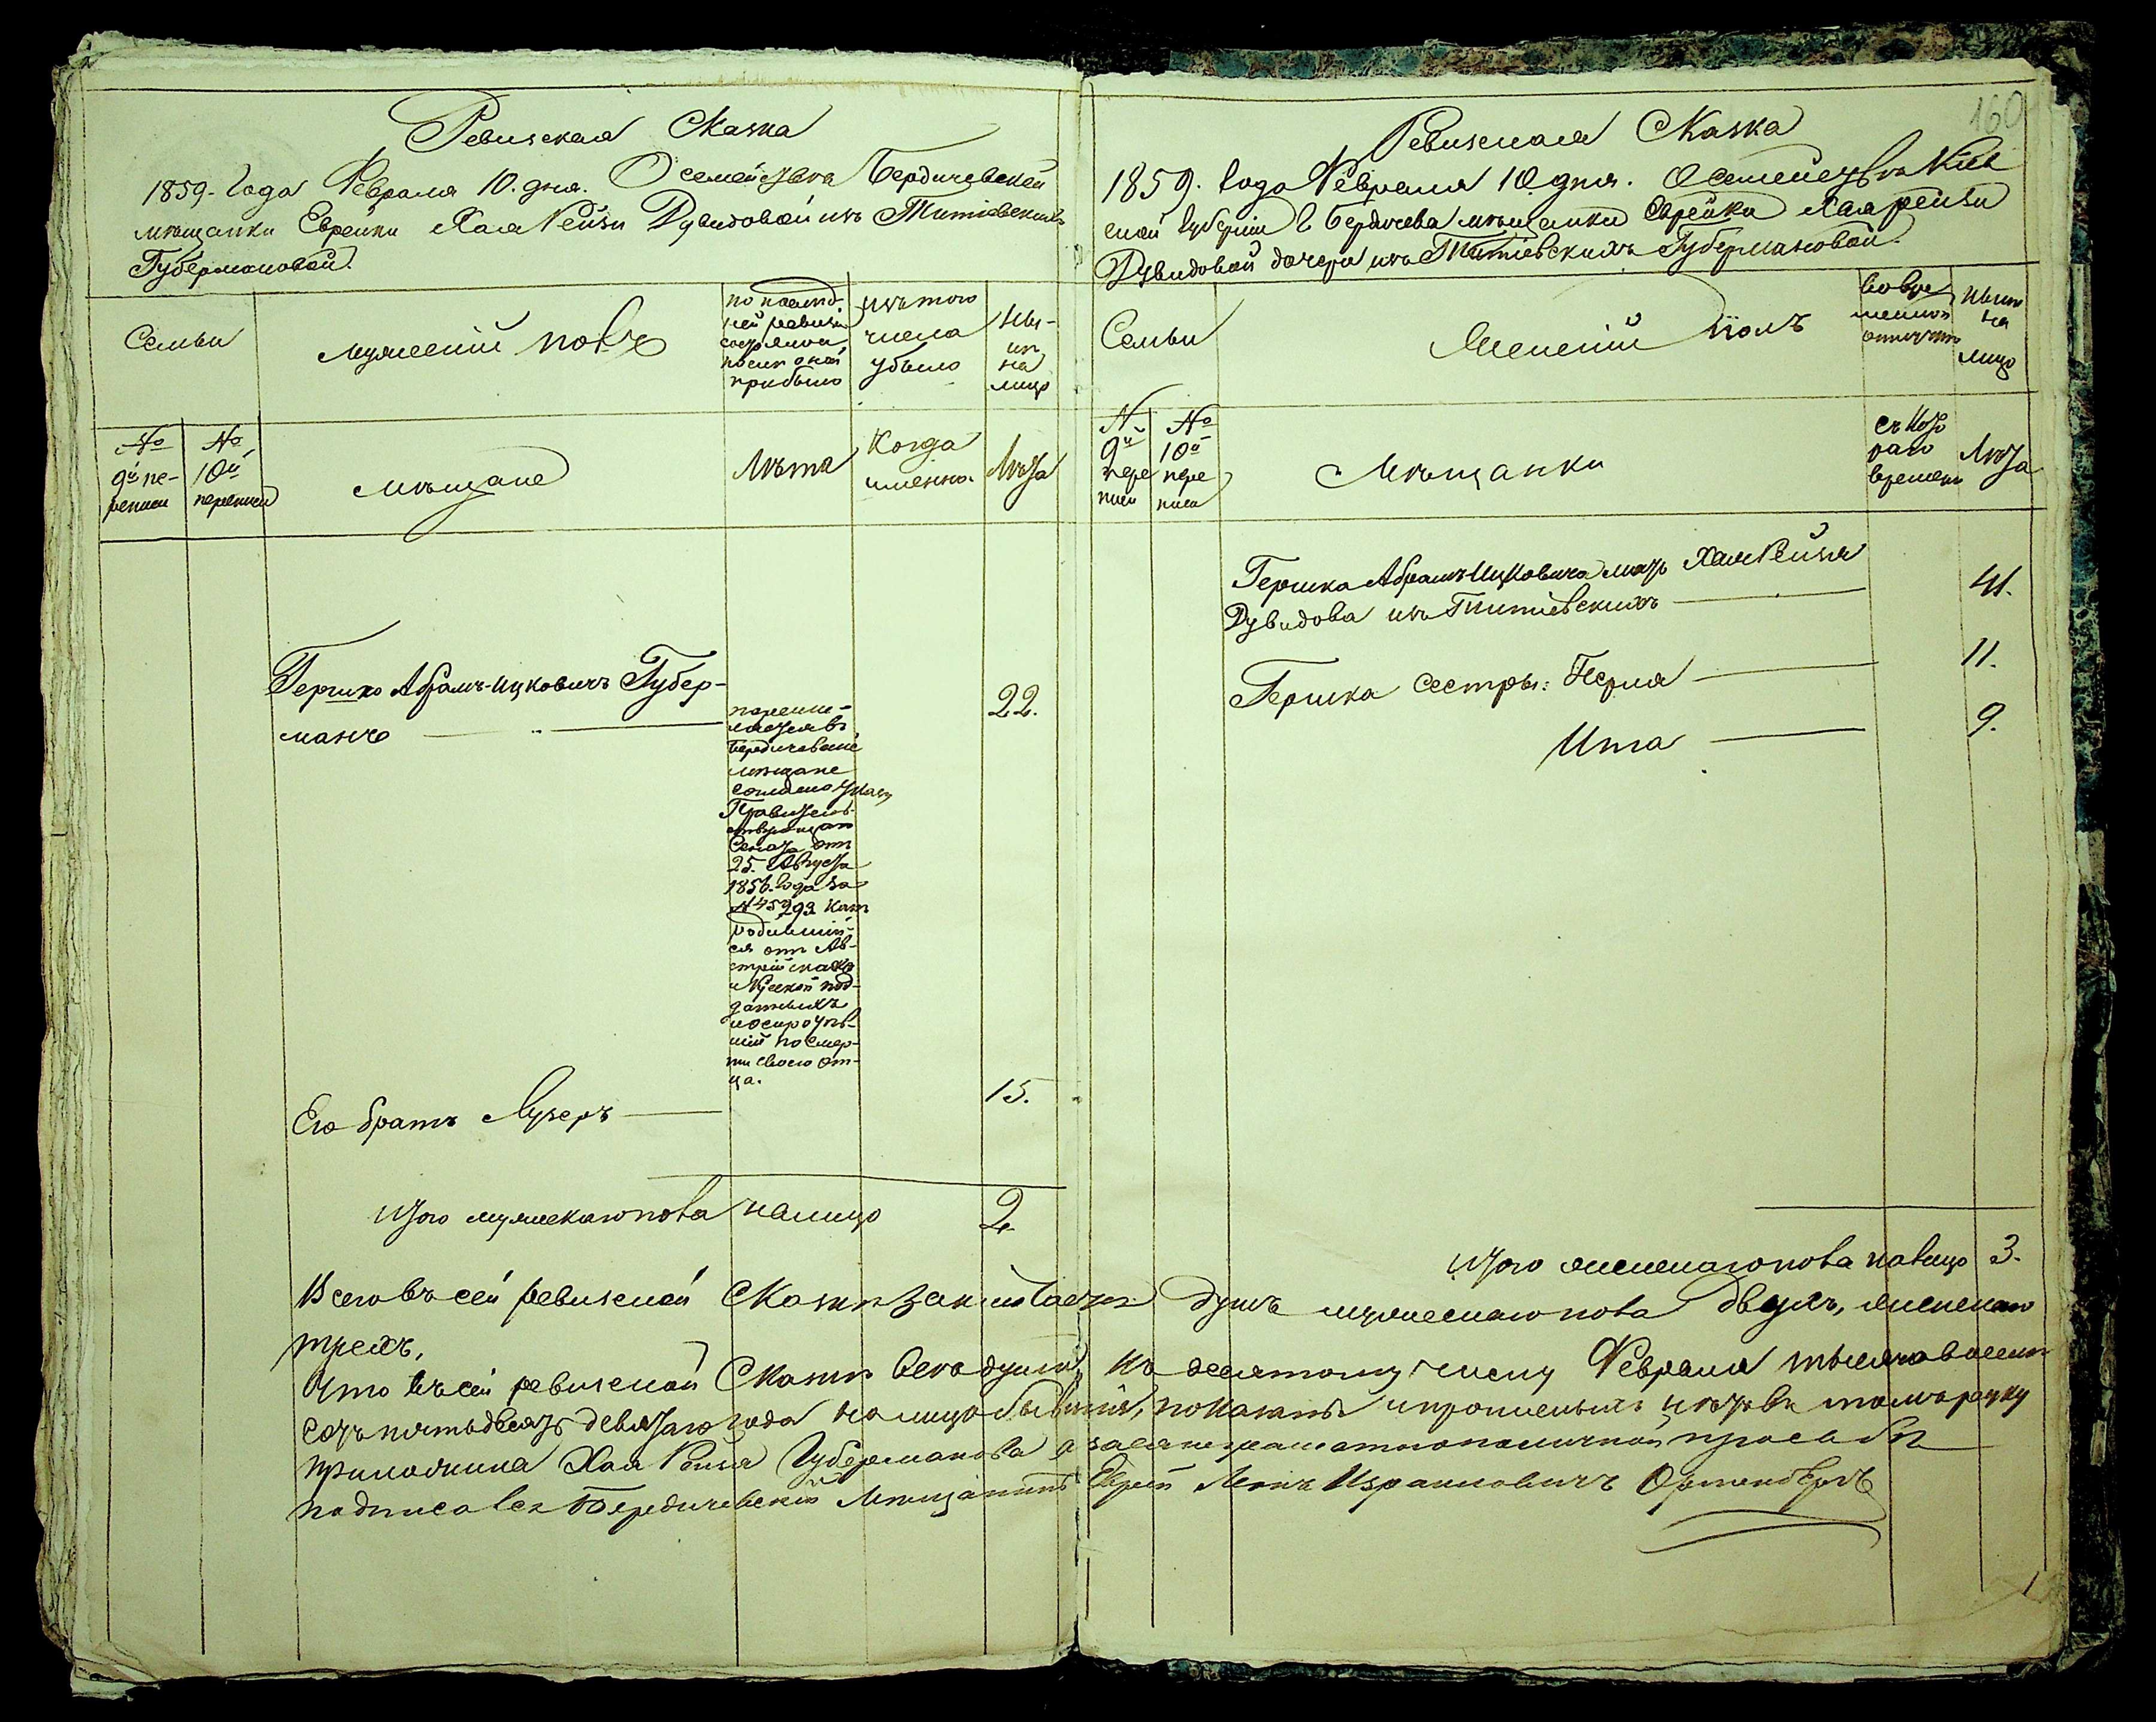 160
Ревизская Сказка
1859. Года Февраля 10. дня. О семействѣ Бердичевской
мѣщанки Еврейки Хая Рейзи Дувидовой изъ Титіевскихъ
Губермановой.
Семьи
мужескій полъ
по послѣд-
ней ревизіи
состояло и
послѣ оной
прибыло
изъ того
числа
убыло
Ны-
нѣ
на
лицо
№
9й пе-
реписи
№
10й
переписи
мѣщане
Лѣта
Когда
именно.
Лѣта
Гершко Абрамъ-Ицковичъ Губер-
манъ
22.
перечис-
Бердичевскіе
мѣщане
согласно указу
Правитель-
Сената отъ
25. Августа
1856. года за
родивший-
ся отъ Ав-
стрійскихъ
под-
данныхъ
шій по смер-
ти своего от-
ца.
Его братъ Лузеръ
15.
Итого мужескаго пола налицо 2
Ревизская Сказка
1859. Года Февраля 10 дня. О семействѣ Кіев
ской Губерніи г. Бердичева мѣщанки Еврейки Хая Рейзи
Дувидовой дочери изъ Титіевскихъ Губермановой.
Семьи
Женскій полъ
Во вре
менной
отлучкѣ
Нынѣ
на
лицо
№
9й
пере
писи
№
10й
пере
писи
Мѣщанки
съ кото
раго
времени
Лѣта
Гершка Абрамъ Ицковича мать Хая Рейзя
Дувидова изъ Титіевскихъ
41.
Гершка сестры: Перля
11.
Ита
9.
Итого женскаго пола налицо 3.
Всего въ сей ревизской Сказкѣ заключается душъ мужескаго пола двухъ, женскаго
трехъ,
Что въ сей ревизской Сказкѣ всѣ души, къ десятому числу Февраля тысяча восемь
сотъ пятьдесятъ девятаго года на лицо бывшія, показаны и прописныхъ нѣтъ въ томъ руку
приложила Хая Рейзя Губерманова а за нея неграматною по личной просьбѣ
подписался Бердичевскій Мѣщанинъ Еврей Лейба Израилевичъ